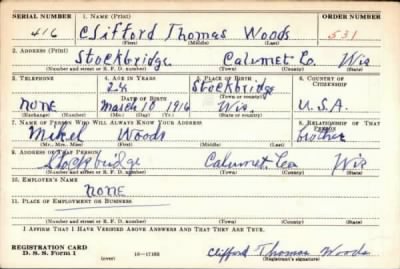 SERIAL NUMBER 1. NAME (Print) ORDER NUMBER
416 Clifford Thomas Woods 531
(First) (Middle) (Last)
2. ADDRESS (Print)
Stockbridge Calumet Co. Wis
(Number and street or R. F. D. number) (Town) (County) (State)
3. TELEPHONE 4. AGE IN YEARS 5. PLACE OF BIRTH 6. COUNTRY OF CITIZENSHIP
24 Stockbridge
DATE OF BIRTH (Town or county)
none March 10 1916 Wis. U.S.A.
(Exchange) (Number) (Mo.) (Day) (Yr.) (State or country)
7. NAME OF PERSON WHO WILL ALWAYS KNOW YOUR ADDRESS 8. RELATIONSHIP OF THAT PERSON
Mikel Woods brother
(Mr., Mrs., Miss) (First) (Middle) (Last)
9. ADDRESS OF THAT PERSON
Stockbridge Calumet Wis
(Number and street or R. F. D. number) (Town) (County) (State)
10. EMPLOYER'S NAME
none
11. PLACE OF EMPLOYMENT OR BUSINESS
(Number and street or R. F. D. number) (Town) (County) (State)
I AFFIRM THAT I HAVE VERIFIED ABOVE ANSWERS AND THAT THEY ARE TRUE.
REGISTRATION CARD
D. S. S. Form 1 (over) 16—17105 Clifford Thomas Woods
(Registrant's signature)